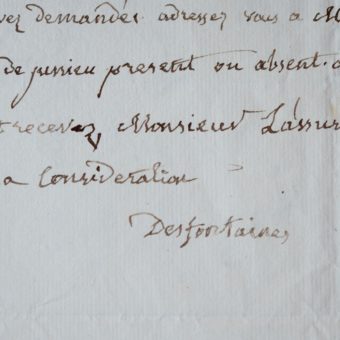 vez demandés adressez vous a M
de jussieu present ou absent.
recevez Monsieur L'assur
a Consideration
Desfontaines